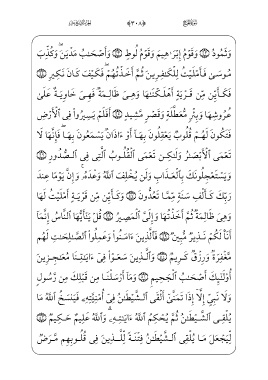 وَثَمُودُ ۝٤٢ وَقَوْمُ إِبْرَٰهِيمَ وَقَوْمُ لُوطٍ ۝٤٣ وَأَصْحَـٰبُ مَدْيَنَ ۖ وَكُذِّبَ
مُوسَىٰ فَأَمْلَيْتُ لِلْكَـٰفِرِينَ ثُمَّ أَخَذْتُهُمْ ۖ فَكَيْفَ كَانَ نَكِيرِ ۝٤٤
فَكَأَيِّن مِّن قَرْيَةٍ أَهْلَكْنَـٰهَا وَهِىَ ظَالِمَةٌ فَهِىَ خَاوِيَةٌ عَلَىٰ
عُرُوشِهَا وَبِئْرٍ مُّعَطَّلَةٍ وَقَصْرٍ مَّشِيدٍ ۝٤٥ أَفَلَمْ يَسِيرُوا۟ فِى ٱلْأَرْضِ
فَتَكُونَ لَهُمْ قُلُوبٌ يَعْقِلُونَ بِهَآ أَوْ ءَاذَانٌ يَسْمَعُونَ بِهَا ۖ فَإِنَّهَا لَا
تَعْمَى ٱلْأَبْصَـٰرُ وَلَـٰكِن تَعْمَى ٱلْقُلُوبُ ٱلَّتِى فِى ٱلصُّدُورِ ۝٤٦
وَيَسْتَعْجِلُونَكَ بِٱلْعَذَابِ وَلَن يُخْلِفَ ٱللَّهُ وَعْدَهُۥ ۚ وَإِنَّ يَوْمًا عِندَ
رَبِّكَ كَأَلْفِ سَنَةٍ مِّمَّا تَعُدُّونَ ۝٤٧ وَكَأَيِّن مِّن قَرْيَةٍ أَمْلَيْتُ لَهَا
وَهِىَ ظَالِمَةٌ ثُمَّ أَخَذْتُهَا وَإِلَىَّ ٱلْمَصِيرُ ۝٤٨ قُلْ يَـٰٓأَيُّهَا ٱلنَّاسُ إِنَّمَآ
أَنَا۠ لَكُمْ نَذِيرٌ مُّبِينٌ ۝٤٩ فَٱلَّذِينَ ءَامَنُوا۟ وَعَمِلُوا۟ ٱلصَّـٰلِحَـٰتِ لَهُم
مَّغْفِرَةٌ وَرِزْقٌ كَرِيمٌ ۝٥٠ وَٱلَّذِينَ سَعَوْا۟ فِىٓ ءَايَـٰتِنَا مُعَـٰجِزِينَ
أُو۟لَـٰٓئِكَ أَصْحَـٰبُ ٱلْجَحِيمِ ۝٥١ وَمَآ أَرْسَلْنَا مِن قَبْلِكَ مِن رَّسُولٍ
وَلَا نَبِىٍّ إِلَّآ إِذَا تَمَنَّىٰٓ أَلْقَى ٱلشَّيْطَـٰنُ فِىٓ أُمْنِيَّتِهِۦ فَيَنسَخُ ٱللَّهُ مَا
يُلْقِى ٱلشَّيْطَـٰنُ ثُمَّ يُحْكِمُ ٱللَّهُ ءَايَـٰتِهِۦ ۗ وَٱللَّهُ عَلِيمٌ حَكِيمٌ ۝٥٢
لِّيَجْعَلَ مَا يُلْقِى ٱلشَّيْطَـٰنُ فِتْنَةً لِّلَّذِينَ فِى قُلُوبِهِم مَّرَضٌ